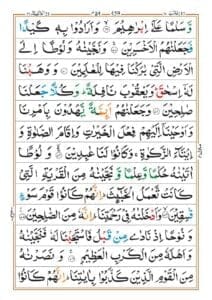 وَّسَلٰمًا عَلٰٓى اِبْرٰهِيْمَ ۝ وَاَرَادُوْا بِهٖ كَيْدًا
فَجَعَلْنٰهُمُ الْاَخْسَرِيْنَ ۝ وَنَجَّيْنٰهُ وَلُوْطًا اِلَى
الْاَرْضِ الَّتِيْ بٰرَكْنَا فِيْهَا لِلْعٰلَمِيْنَ ۝ وَوَهَبْنَا
لَهٗٓ اِسْحٰقَ وَيَعْقُوْبَ نَافِلَةً وَكُلًّا جَعَلْنَا
صٰلِحِيْنَ ۝ وَجَعَلْنٰهُمْ اَئِمَّةً يَّهْدُوْنَ بِاَمْرِنَا
وَاَوْحَيْنَآ اِلَيْهِمْ فِعْلَ الْخَيْرٰتِ وَاِقَامَ الصَّلٰوةِ وَ
اِيْتَآءَ الزَّكٰوةِ وَكَانُوْا لَنَا عٰبِدِيْنَ ۝ وَلُوْطًا
اٰتَيْنٰهُ حُكْمًا وَّعِلْمًا وَّنَجَّيْنٰهُ مِنَ الْقَرْيَةِ الَّتِيْ
كَانَتْ تَّعْمَلُ الْخَبٰٓئِثَ اِنَّهُمْ كَانُوْا قَوْمَ سَوْءٍ
فٰسِقِيْنَ ۝ وَاَدْخَلْنٰهُ فِيْ رَحْمَتِنَا اِنَّهٗ مِنَ الصّٰلِحِيْنَ ۝
وَنُوْحًا اِذْ نَادٰى مِنْ قَبْلُ فَاسْتَجَبْنَا لَهٗ فَنَجَّيْنٰهُ
وَاَهْلَهٗ مِنَ الْكَرْبِ الْعَظِيْمِ ۝ وَنَصَرْنٰهُ
مِنَ الْقَوْمِ الَّذِيْنَ كَذَّبُوْا بِاٰيٰتِنَا اِنَّهُمْ كَانُوْا